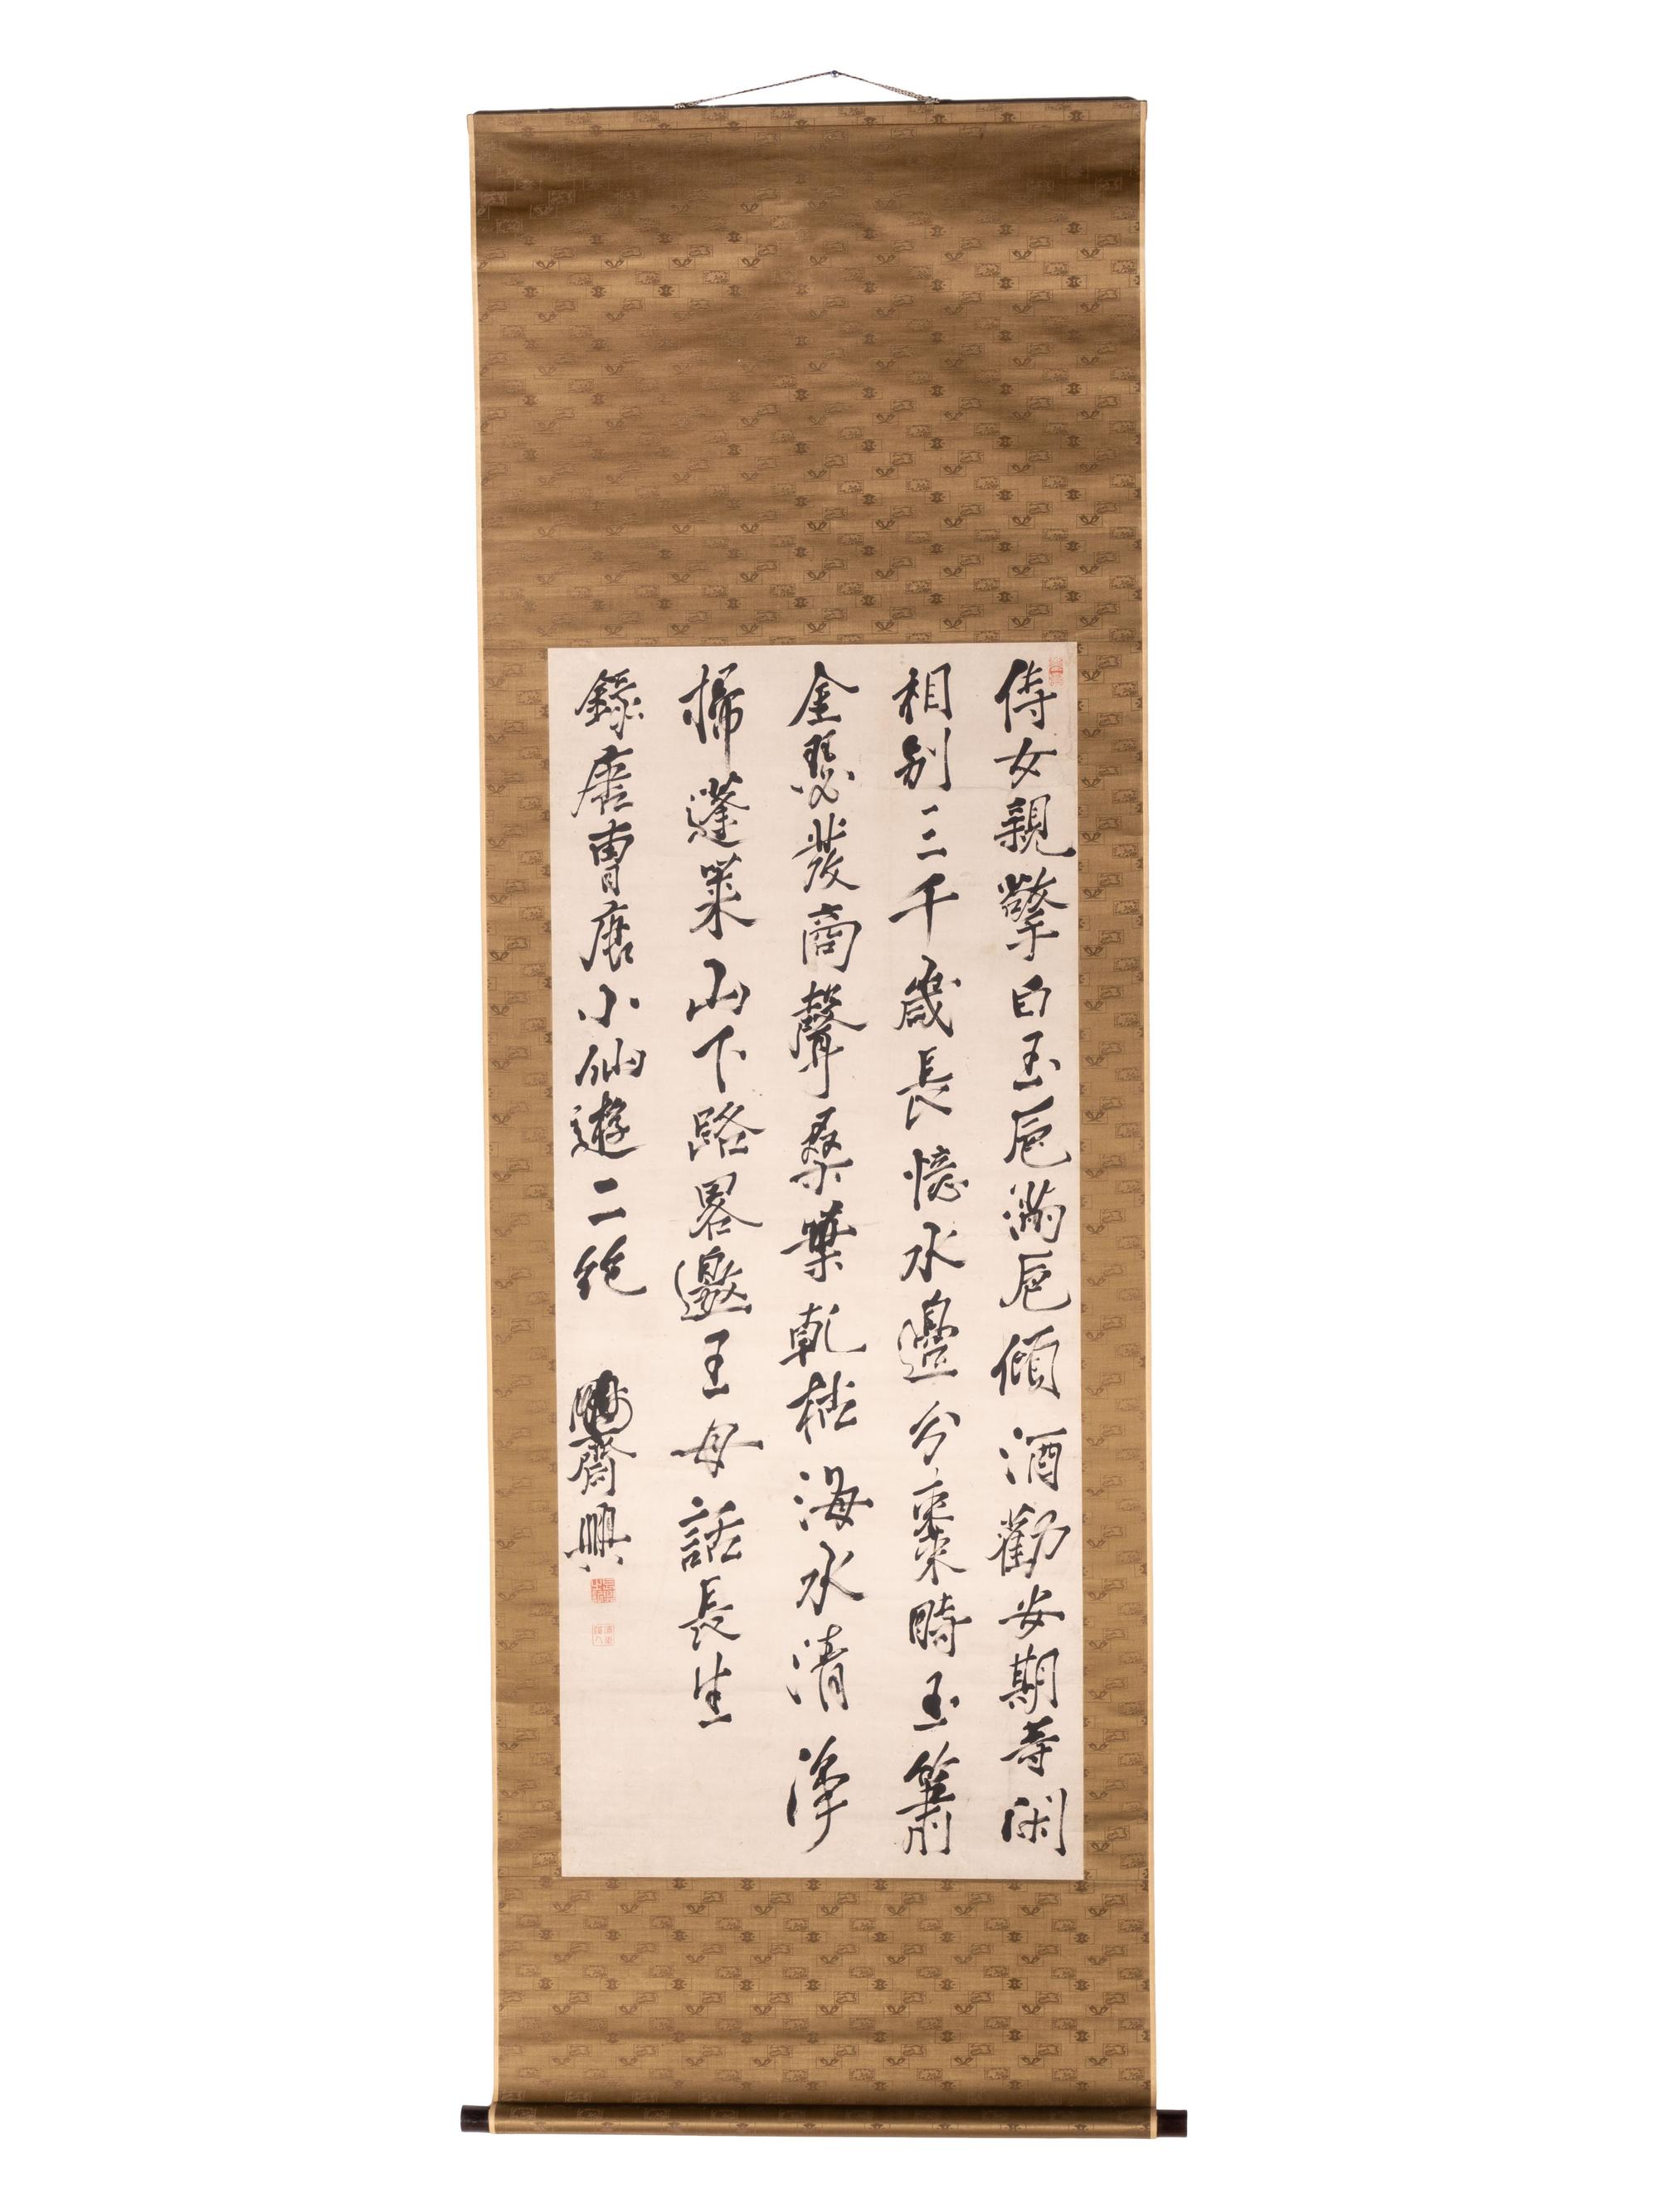 侍女親擎白玉巵滿巵傾酒勸安期等閑
相別三千歲長憶水邊分棗時玉簫
金瑟發商聲桑葉乾枯海水清淨
掃蓬萊山下路畧邀王母話長生
錄唐曹唐小仙遊二絶 鵬齋興